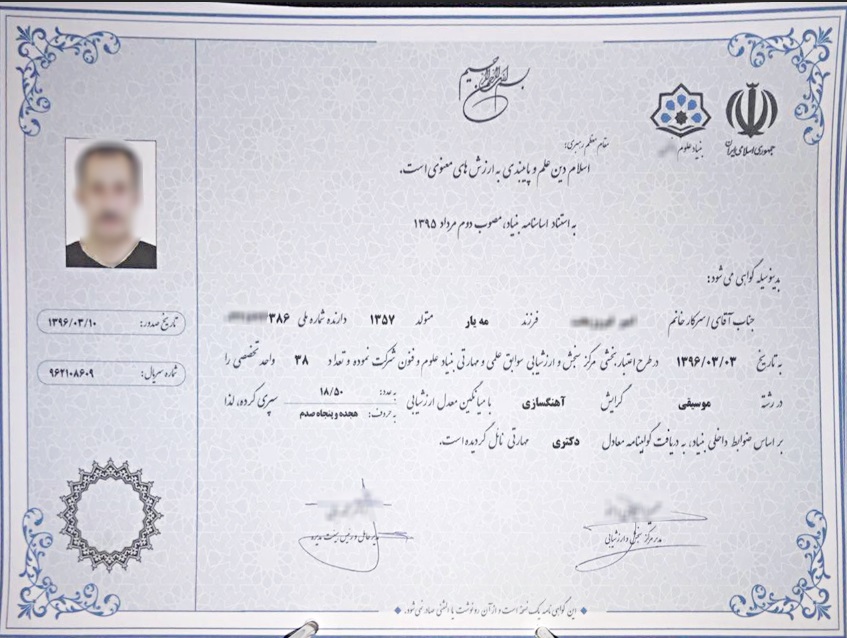 بسم الله الرحمن الرحیم
جمهوری اسلامی ایران
بنیاد علوم
مقام معظم رهبری:
اسلام دین علم و پایبندی به ارزش های معنوی است.
به استناد اساسنامه بنیاد، مصوب دوم مرداد ۱۳۹۵
بدینوسیله گواهی می شود:
جناب آقای / سرکار خانم فرزند مه یار متولد ۱۳۵۷ دارنده شماره ملی ۳۸۶
به تاریخ ۱۳۹۶/۰۳/۰۳ در طرح اعتباربخشی مرکز سنجش و ارزشیابی سوابق علمی و مهارتی بنیاد علوم و فنون شرکت نموده و تعداد ۳۸ واحد تخصصی را
در رشته موسیقی گرایش آهنگسازی با میانگین معدل ارزشیابی به عدد: ۱۸/۵۰ به حروف: هجده و پنجاه صدم سپری کرده، لذا
بر اساس ضوابط داخلی بنیاد، به دریافت گواهینامه معادل دکتری مهارتی نائل گردیده است.
تاریخ صدور: ۱۳۹۶/۰۳/۱۰
شماره سریال: ۹۶۲۱۰۸۶۰۹
مدیر مرکز سنجش و ارزشیابی
مدیرعامل و رئیس هیئت مدیره
این گواهی نامه یک نسخه است و از آن رونوشت یا المثنی صادر نمی شود.